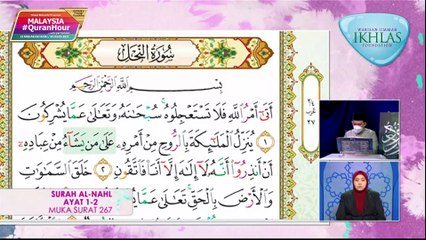 MALAYSIA
#QuranHour
WARISAN UMMAH
IKHLAS
FOUNDATION
سُورَةُ النَّحْلِ
بِسْمِ اللَّهِ الرَّحْمَٰنِ الرَّحِيمِ
أَتَىٰ أَمْرُ اللَّهِ فَلَا تَسْتَعْجِلُوهُ سُبْحَانَهُ وَتَعَالَىٰ عَمَّا يُشْرِكُونَ
١ يُنَزِّلُ الْمَلَائِكَةَ بِالرُّوحِ مِنْ أَمْرِهِ عَلَىٰ مَنْ يَشَاءُ مِنْ عِبَادِهِ
أَنْ أَنْذِرُوا أَنَّهُ لَا إِلَٰهَ إِلَّا أَنَا فَاتَّقُونِ ٢ خَلَقَ السَّمَاوَاتِ
وَالْأَرْضَ بِالْحَقِّ تَعَالَىٰ عَمَّا يُشْرِكُونَ
SURAH AL-NAHL
AYAT 1-2
MUKA SURAT 267